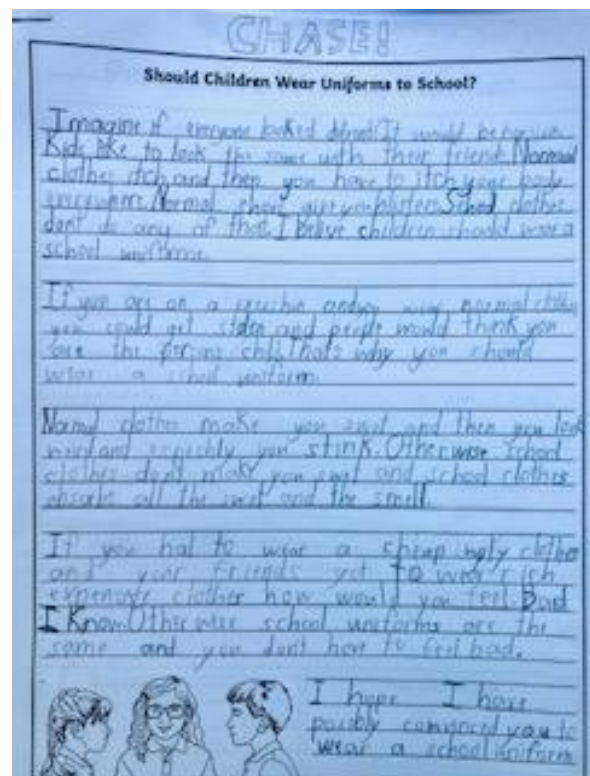 CHASE!
Should Children Wear Uniforms to School?
Imagine if everyone looked It would be
Kids like to look the same with their friend. Normal
clothes itch and then you have to itch your body
Normal shoes give you School clothes
dont do any of that. I belive children should wear a
school uniform.
If you are on a and you wear normal clothes
you could get stolen and people would think you
are the persons child. Thats why you should
wear a school uniform.
Normal clothes make you swet and then you look
and you stink. Otherwise school
clothes dont make you swet and school clothes
absorbs all the swet and the smell.
If you had to wear a cheap ugly clothes
and your friends get to wear rich
clothes how would you feel. Bad
I Know. Otherwise school uniforms are the
same and you dont have to feel bad.
I hope I have
convinced you to
wear a school uniform